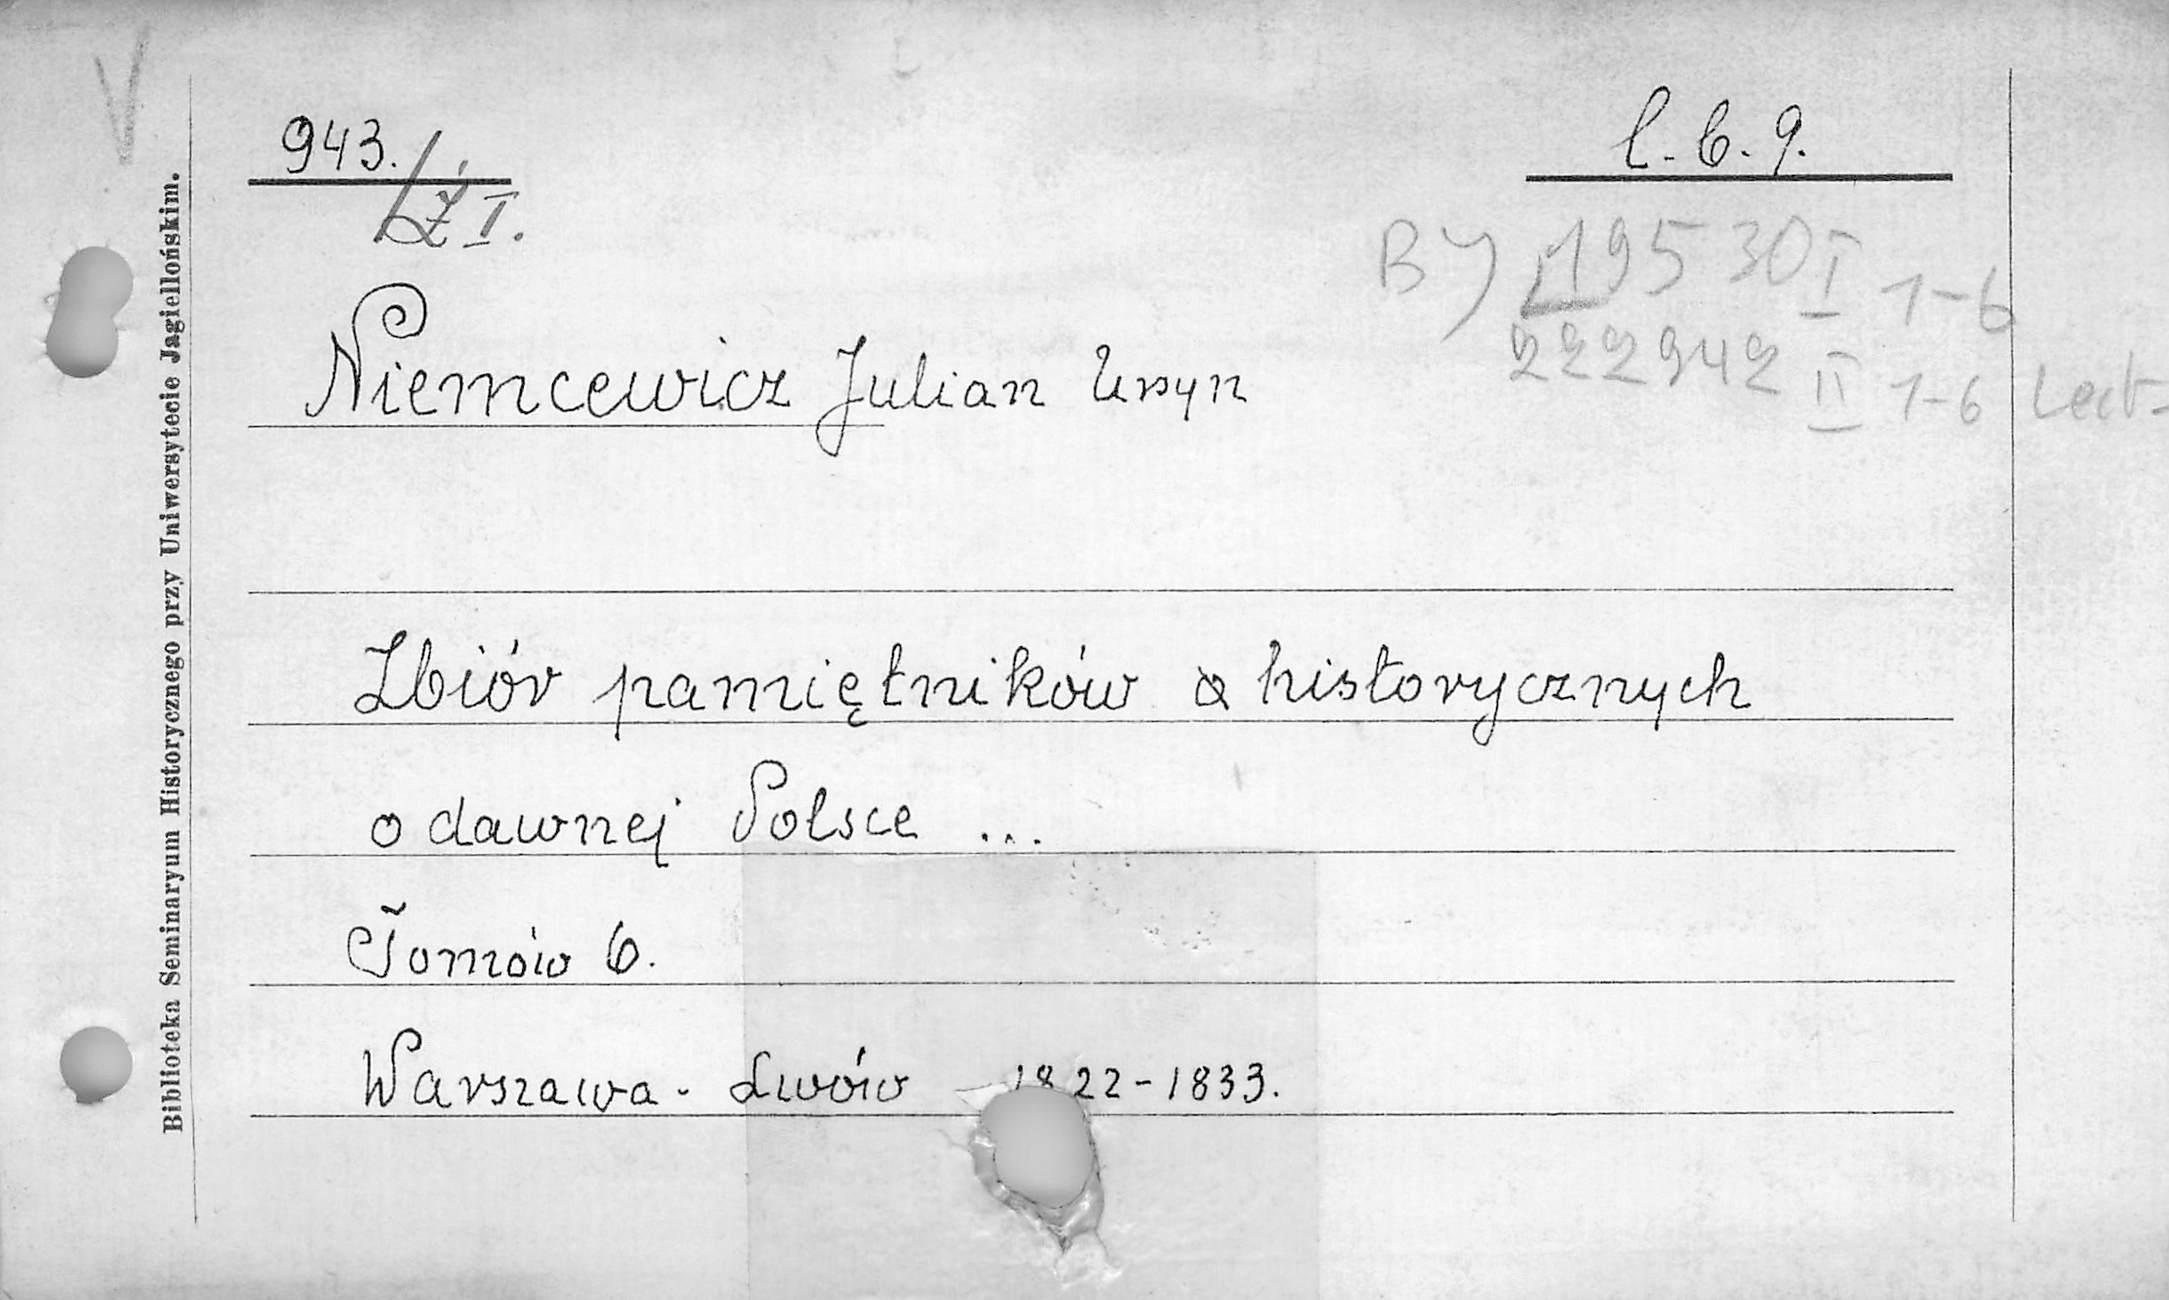 V
943.
Ź I.
l. b. 9.
BJ 19530 I 1-6
222942 II 1-6 Lect.
Niemcewicz Julian Ursyn
Zbiór pamiętników historycznych
o dawnej Polsce ...
Tomów 6.
Warszawa - Lwów 1822-1833.
Biblioteka Seminaryum Historycznego przy Uniwersytecie Jagiellońskim.